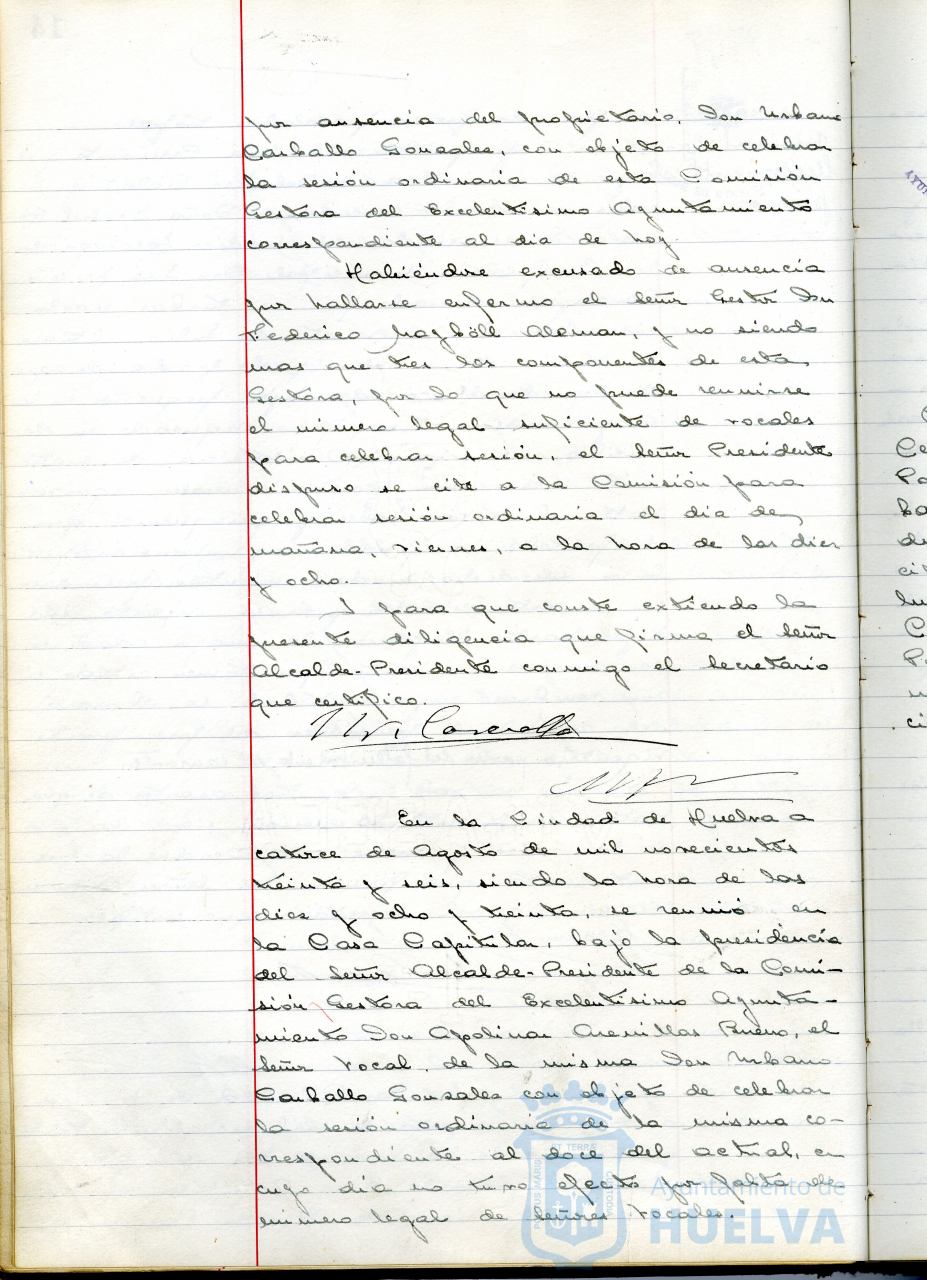 por ausencia del propietario, Don Urbano
Carballo Gonzalez, con objeto de celebrar
la sesión ordinaria de esta Comisión
Gestora del Excelentisimo Ayuntamiento
correspondiente al dia de hoy.
Habiéndose excusado de ausencia
por hallarse enfermo el Señor Gestor Don
Federico Mayböll Aleman, y no siendo
mas que tres los componentes de esta
Gestora, por lo que no puede reunirse
el número legal suficiente de vocales
para celebrar sesión, el Señor Presidente
dispuso se cite a la Comisión para
celebrar sesión ordinaria el dia de
mañana, viernes, a la hora de las diez
y ocho.
Y para que conste extiendo la
presente diligencia que firma el Señor
Alcalde-Presidente conmigo el Secretario
que certifico.
En la Ciudad de Huelva a
catorce de Agosto de mil novecientos
treinta y seis, siendo la hora de las
diez y ocho y treinta, se reunió en
la Casa Capitular, bajo la presidencia
del Señor Alcalde-Presidente de la Comi-
sión Gestora del Excelentisimo Ayunta-
miento Don Apolinar Arenillas Bueno, el
Señor Vocal de la misma Don Urbano
Carballo Gonzalez con objeto de celebrar
la sesión ordinaria de la misma co-
rrespondiente al doce del actual, en
cuyo dia no tuvo efecto por falta de
número legal de Señores Vocales.
Ayuntamiento de
HUELVA